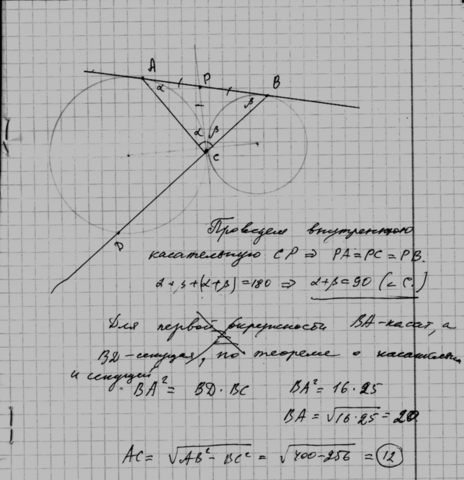 A P B
α β
α β
C
D
Проведем внутреннюю
касательную CP ⇒ PA=PC=PB.
α+β+(α+β)=180 ⇒ α+β=90 (∠C.)
Для первой окружности BA-касат, а
BD-секущая, по теореме о касательной
и секущей
BA² = BD·BC BA² = 16·25
BA = √16·25 = 20
AC = √AB² - BC² = √400-256 = 12